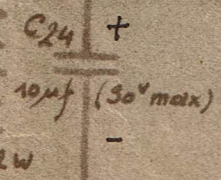 C24 +
10µf (30ᵛ max)
-
2W